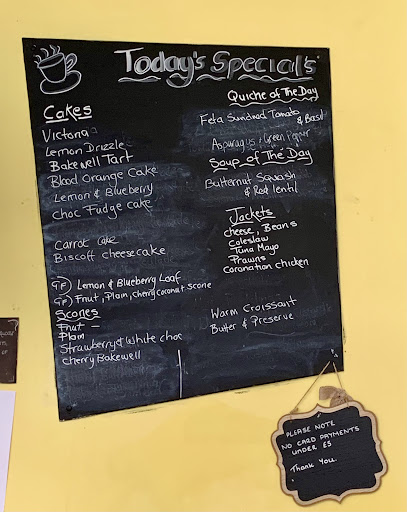 Today's Specials
Cakes
Victoria
Lemon Drizzle
Bakewell Tart
Blood Orange Cake
Lemon & Blueberry
Choc Fudge cake
Carrot Cake
Biscoff cheesecake
GF) Lemon & Blueberry Loaf
GF) Fruit, Plain, Cherry Coconut Scone
Scones
Fruit –
Plain
Strawberry & White choc
Cherry Bakewell
Quiche of The Day
Feta Sundried Tomato
& Basil
Asparagus & Green Pepper
Soup of The Day
Butternut Squash
& Red lentil
Jackets
cheese, Beans
Coleslaw
Tuna Mayo
Prawns
Coronation chicken
Warm Croissant
Butter & Preserve
PLEASE NOTE
NO CARD PAYMENTS
UNDER £5
Thank You.